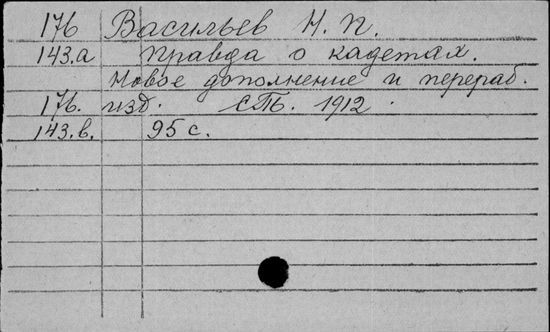 176 Васильев Н. П.
143.а Правда о кадетах.
Новое дополнение и перераб.
176. изд. СПб. 1912.
143.в. 95 с.